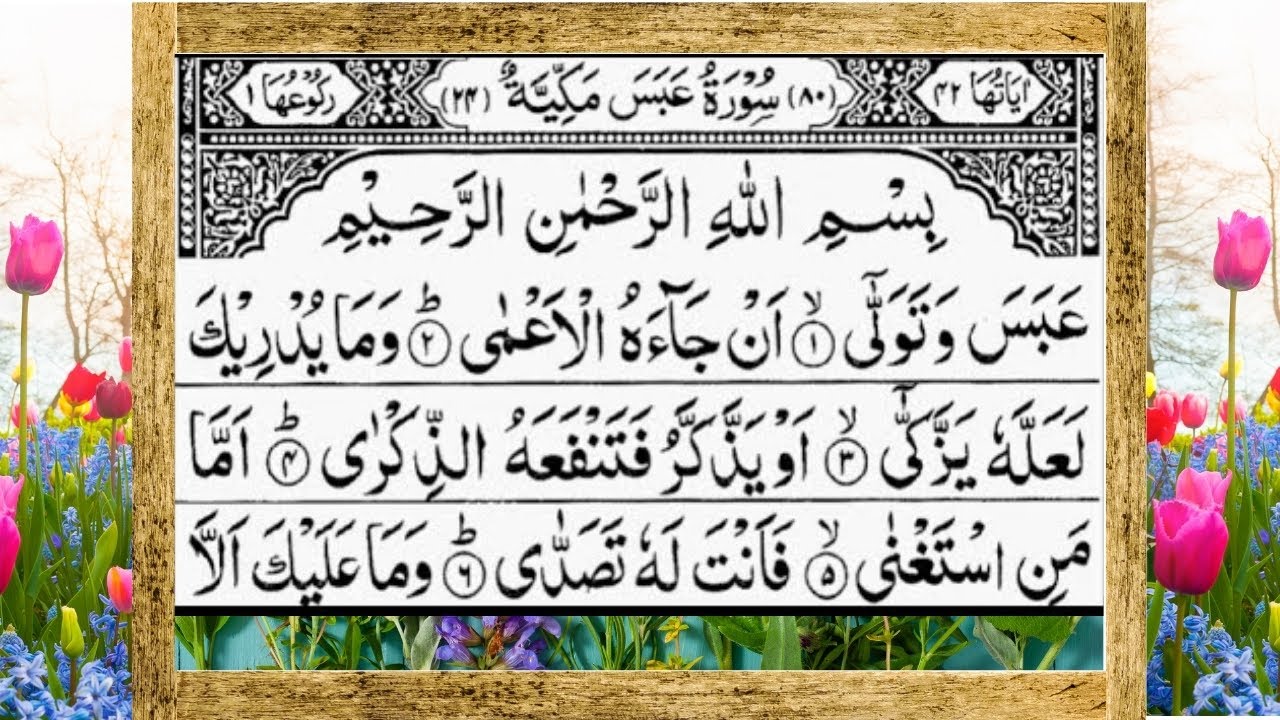 اٰیَاتُهَا ۴۲ (۸۰) سُوْرَةُ عَبَسَ مَكِّیَّةٌ (۲۴) رُكُوْعُهَا ۱
بِسْمِ اللّٰهِ الرَّحْمٰنِ الرَّحِیْمِ
عَبَسَ وَ تَوَلّٰۤی ۙ﴿۱﴾ اَنْ جَآءَهُ الْاَعْمٰی ؕ﴿۲﴾ وَ مَا یُدْرِیْكَ
لَعَلَّهٗ یَزَّكّٰۤی ۙ﴿۳﴾ اَوْ یَذَّكَّرُ فَتَنْفَعَهُ الذِّكْرٰی ؕ﴿۴﴾ اَمَّا
مَنِ اسْتَغْنٰی ۙ﴿۵﴾ فَاَنْتَ لَهٗ تَصَدّٰی ؕ﴿۶﴾ وَ مَا عَلَیْكَ اَلَّا